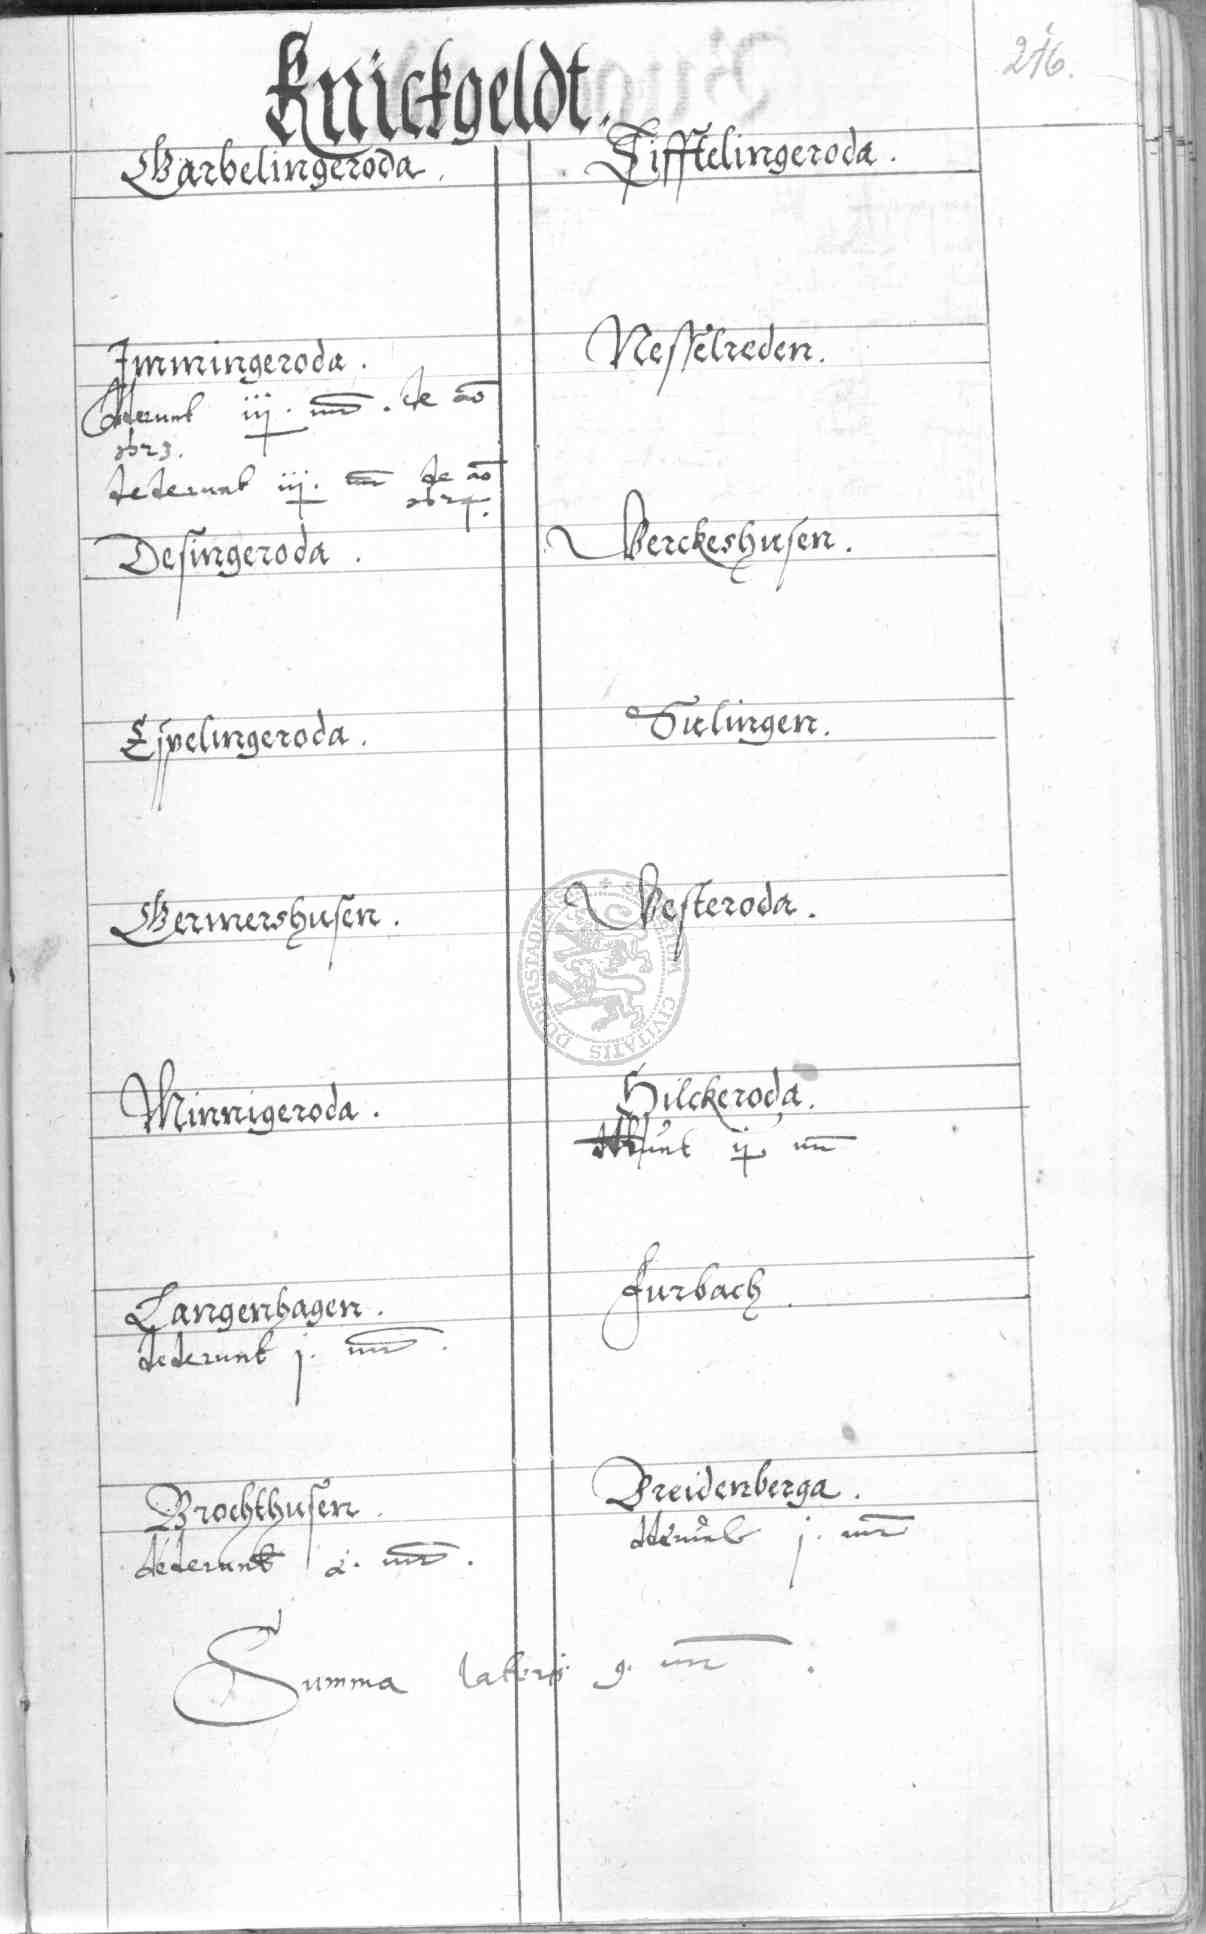 216.
Knickgeldt.
Garbelingeroda.
Immingeroda.
dederunt iij. mr. de ao
1623.
dederunt iij. mr de ao
1624.
Desingeroda.
Espelingeroda.
Germershusen.
Minnigeroda.
Langenhagen.
dederunt j. mr.
Brochthusen.
dederunt 2. mr.
Tifftelingeroda.
Nesselreden.
Werckeshusen.
Sulingen.
Westeroda.
Hilckeroda.
ij mr
Furbach.
Breidenberga.
j. mr
Summa lateris 9. mr.
SIGILLUM CIVITATIS DUDERSTADIENSIS